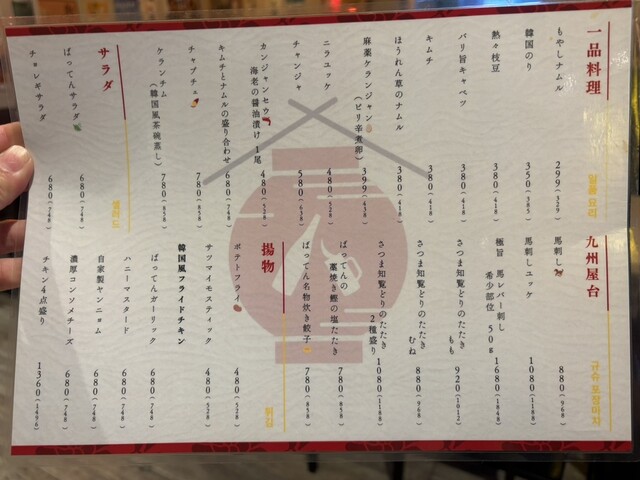 一品料理
일품 요리
もやしナムル 299(329)
韓国のり 350(385)
熱々枝豆 380(418)
バリ旨キャベツ 380(418)
キムチ 380(418)
ほうれん草のナムル 380(418)
麻薬ケランジャン
(ピリ辛煮卵) 399(438)
ニラユッケ 480(528)
チャンジャ 580(638)
カンジャンセウ
海老の醤油漬け 1尾 480(528)
キムチとナムルの盛り合わせ 680(748)
チャプチェ 780(858)
ケランチム
(韓国風茶碗蒸し) 780(858)
サラダ
샐러드
ばってんサラダ 680(748)
チョレギサラダ 680(748)
九州屋台
규슈 포장마차
馬刺し 880(968)
馬刺しユッケ 1080(1188)
極旨 馬レバー刺し
希少部位 50g 1680(1848)
さつま知覧どりのたたき もも 920(1012)
さつま知覧どりのたたき むね 880(968)
さつま知覧どりのたたき
2種盛り 1080(1188)
ばってんの
藁焼き鰹の塩たたき 780(858)
ばってん名物炊き餃子 780(858)
揚物
튀김
ポテトフライ 480(528)
サツマイモスティック 480(528)
韓国風フライドチキン
ばってんガーリック 680(748)
ハニーマスタード 680(748)
自家製ヤンニョム 680(748)
濃厚コンソメチーズ 680(748)
チキン4点盛り 1360(1496)